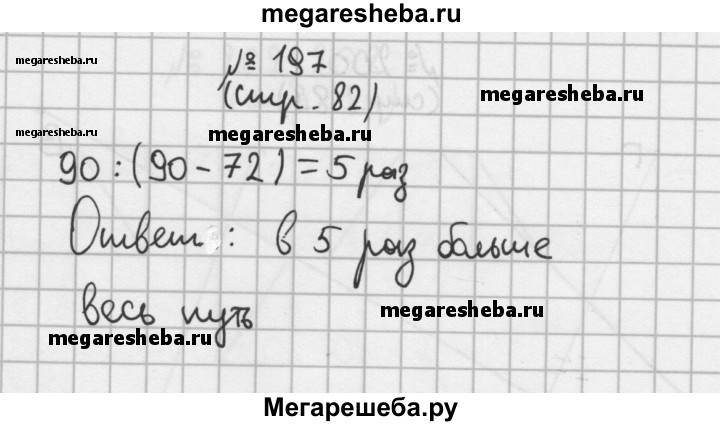 megaresheba.ru
№ 197
megaresheba.ru
(стр. 82)
megaresheba.ru
megaresheba.ru
megaresheba.ru
90 : (90 - 72) = 5 раз
Ответ : в 5 раз больше
весь путь
megaresheba.ru
megaresheba.ru
Мегарешеба.ру